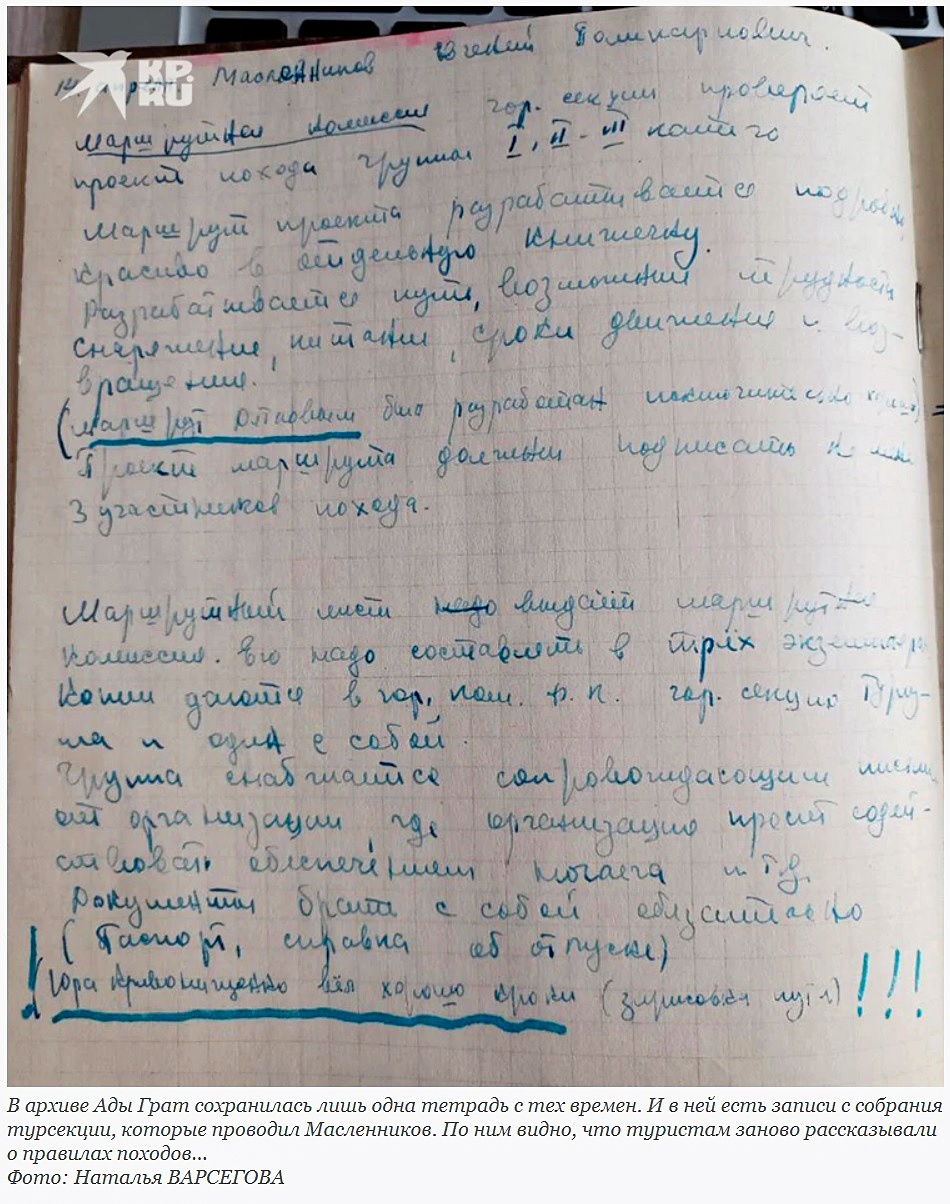 KP.RU
Масленников Евгений Поликарпович.
Маршрутная комиссия гор. секции проверяет
проект похода группы I, II - III катег
Маршрут проекта разрабатывается подробно,
красиво в отдельную книжечку.
Разрабатывается путь, возможные трудности
снаряжение, питание, сроки движения и воз-
вращения.
(маршрут Отдовым был разработан исключительно хорошо)
Проект маршрута должны подписать
3 участников похода.
Маршрутный лист надо выдаёт маршрутная
комиссия. Его надо составлять в трёх экземпляра
Копии даются в гор. ком. ф. к. гор. секцию Тури-
ма и один с собой.
Группа снабжается сопроводающим письм
от организации, где организацию просят содей-
ствовать обеспечением ночлега и т.д.
Документы брать с собой обязательно
(Паспорт, справка об отпуске)
! Юра Кривонищенко вёл хорошо кроки (зарисовки пути) !!!
В архиве Ады Грат сохранилась лишь одна тетрадь с тех времен. И в ней есть записи с собрания
турсекции, которые проводил Масленников. По ним видно, что туристам заново рассказывали
о правилах походов...
Фото: Наталья ВАРСЕГОВА